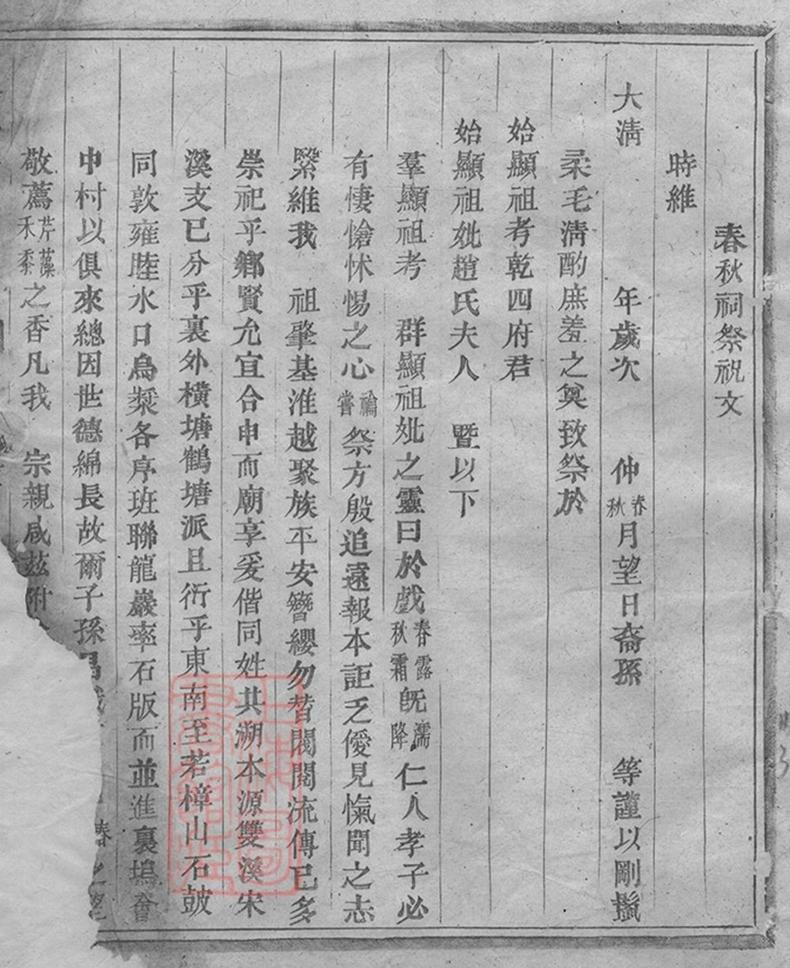 春秋祠祭祝文
時維
大淸 年歲次 仲春秋月望日裔孫 等謹以剛鬣
柔毛淸酌庶羞之奠致祭於
始顯祖考乾四府君
始顯祖妣趙氏夫人 暨以下
羣顯祖考 群顯祖妣之靈曰於戲春露秋霜旣濡降仁人孝子必
有悽愴怵惕之心禴嘗祭方殷追遠報本詎乏僾見愾聞之志
緊維我 祖肇基淮越聚族平安簪纓勿替閥閱流傳已多
崇祀乎鄉賢允宜合申而廟享爰偕同姓其溯本源雙溪宋
溪支已分乎裏外橫塘鶴塘派且衍乎東南至若樟山石皷
同敦雍睦水口烏漿各序班聯龍巖率石版而並進裏塢會
中村以俱來總因世德綿長故爾子孫
敬薦芹藻禾黍之香凡我 宗親咸玆附
春